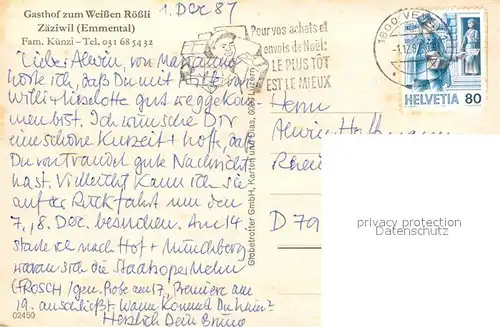 Gasthof zum Weißen Rößli
Zäziwil (Emmental)
Fam. Künzi – Tel. 031 68 54 32
1. Dez 87
Pour vos achets et
envois de Noël:
LE PLUS TÔT
EST LE MIEUX
1800 VE
HELVETIA 80
Lieber Alwin, von Marianne
hörte ich, daß Du mit Hilfe von
Willi + Liselotte gut weggekom-
men bist. Ich wünsche Dir
eine schöne Kurzeit + hoffe, daß
Du von Traudel gute Nachricht
hast. Vielleicht kann ich sie
auf der Rückfahrt um den
7./8. Dez. besuchen. Am 14.
starte ich nach Hof + Münchberg
woran sich die Staatsoper
FROSCH Gen. Probe am 17., Premiere am
19. anschließt. Wann kommst Du heim?
Herzlich Dein Bruno
Herrn
Alwin
Rhei
D 79
Globetrotter GmbH, Karten und Dias, 6003 Luzern
02450
privacy protection
Datenschutz